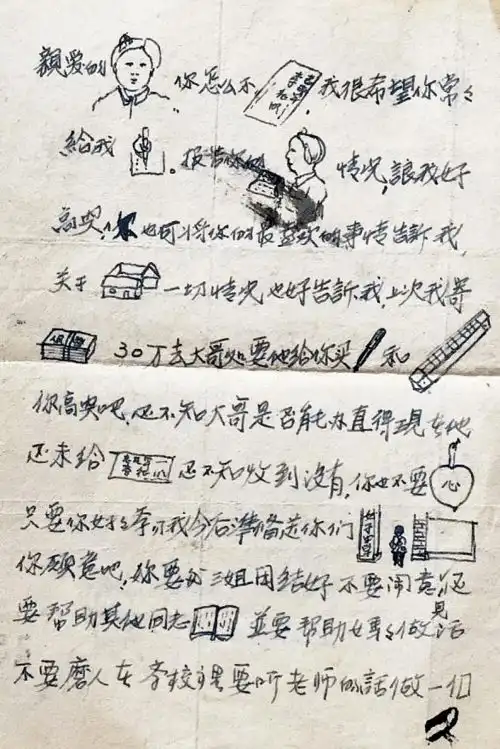 親爱的 你怎么不 我很希望你常々
給我 。报告你的 情况,讓我好
高兴,你也可以将你的最喜欢的事情告訴我,
关于 一切情况也好告訴我,上次我寄
30万去大哥処要他給你买 和
你高兴吧,还不知大哥是否能办直得現在他
还未给 忍不知收到没有,你也不要 心
只要你好好学习我今后準备 你们
你願意吧,你要和三姐团结好不要闹意见还
要帮助其他同志 並要帮助 做 活
不要磨人在学校里要听老师的話做一個